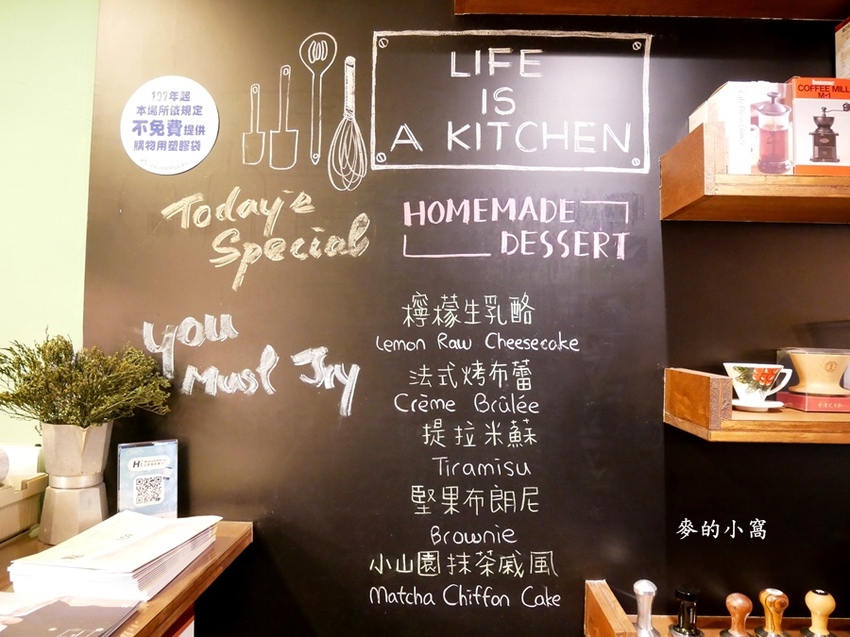 107年起
本場所依規定
不免費提供
購物用塑膠袋
LIFE
IS
A KITCHEN
Today's
Special
HOMEMADE
DESSERT
you
Must Try
檸檬生乳酪
Lemon Raw Cheesecake
法式烤布蕾
Crème Brûlée
提拉米蘇
Tiramisu
堅果布朗尼
Brownie
小山園抹茶戚風
Matcha Chiffon Cake
COFFEE MILL
M-1
Hi
麥的小窩